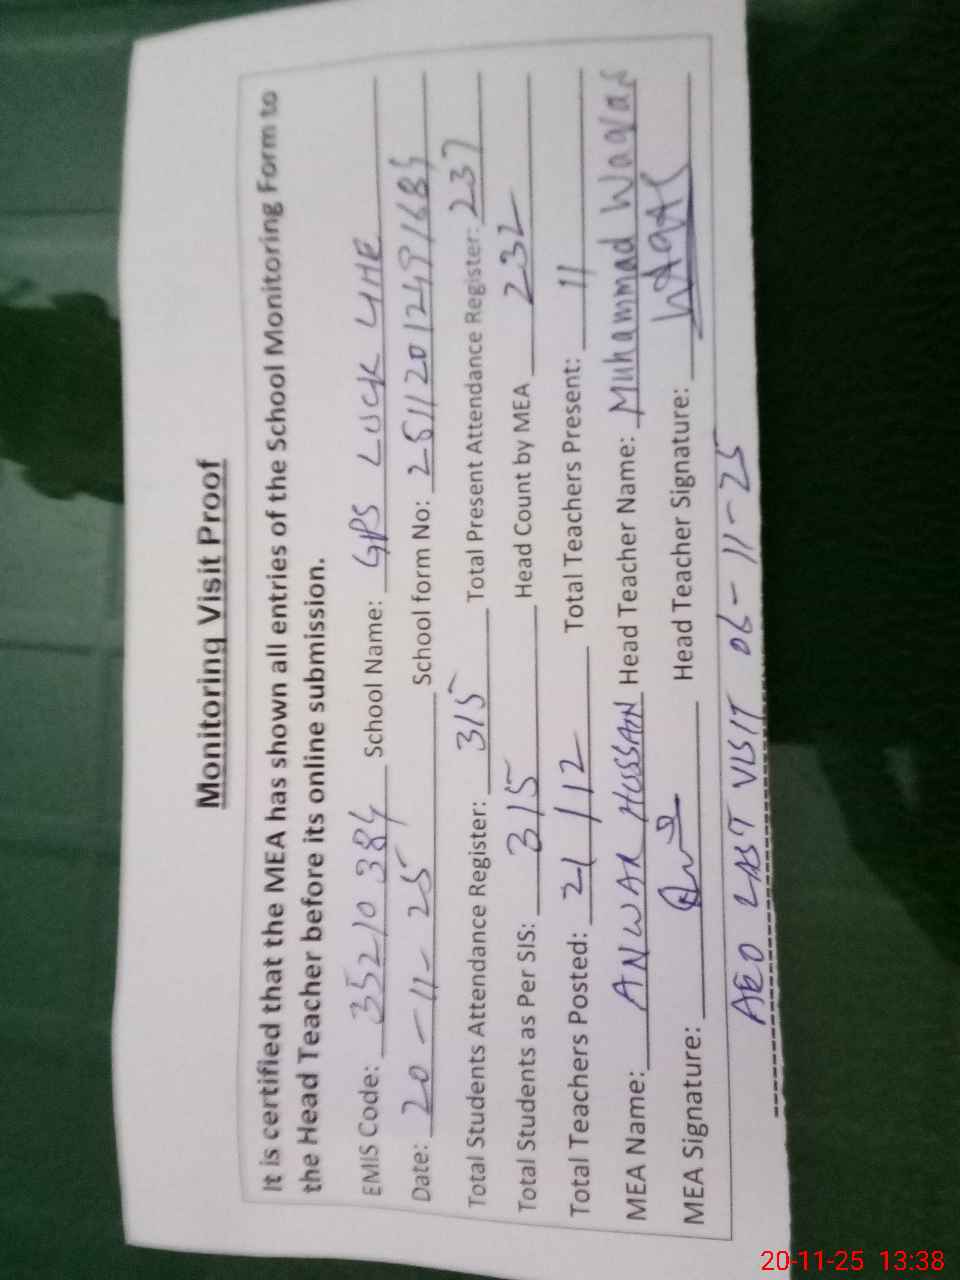 Monitoring Visit Proof
It is certified that the MEA has shown all entries of the School Monitoring Form to
the Head Teacher before its online submission.
EMIS Code: 35210384 School Name: GPS LUCK 4HE
Date: 20-11-25 School form No:
Total Students Attendance Register: 315 Total Present Attendance Register: 237
Total Students as Per SIS: 315 Head Count by MEA 232
Total Teachers Posted: 21/12 Total Teachers Present: 11
MEA Name: ANWAR HUSSAIN Head Teacher Name: Muhammad Waqas
MEA Signature: Head Teacher Signature: WAQAS
AEO LAST VISIT 06-11-25
20-11-25 13:38